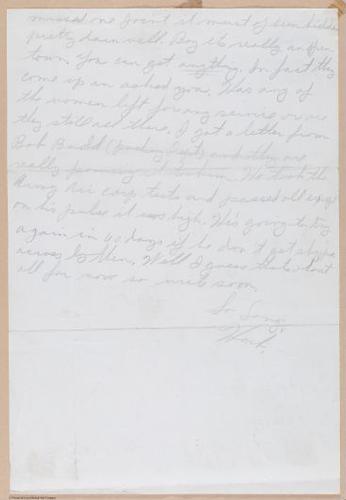 missed one joint it must of been hidden
pretty darn well. Boy it's really an open
town. You can get anything. In fact they
come up in asked you. Has any of
the women left for any service or are
they still all there. I got a letter from
Bob Budd and they are
really to him. He took the
Army Air Corp tests and passed all except
on his pulse it was high. He's going to try
again in 60 days if he don't get shipped
across by then. Well I guess that's about
all for now so write soon.
So Long,